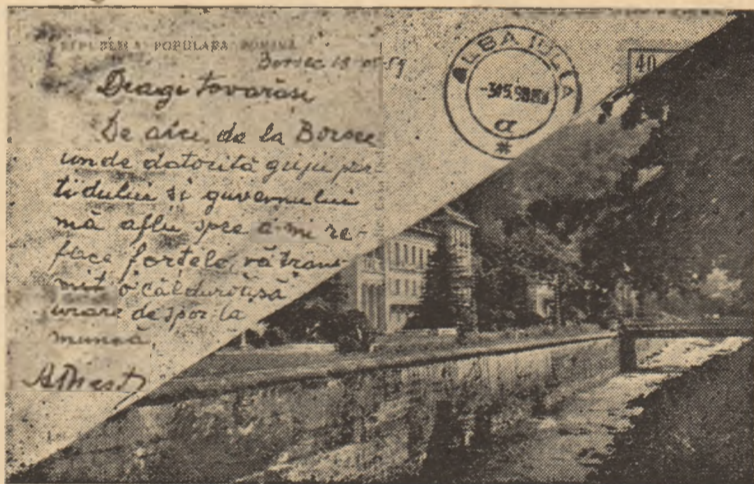 REPUBLICA POPULARĂ ROMÂNĂ
Borsec
Dragi tovarăși
De aici, de la Borsec
unde datorită grijii par-
tidului și guvernului
mă aflu spre a-mi re-
face forțele, vă trans-
mit o călduroasă
urare de spor la
muncă
ALBA IULIA
a
*
40